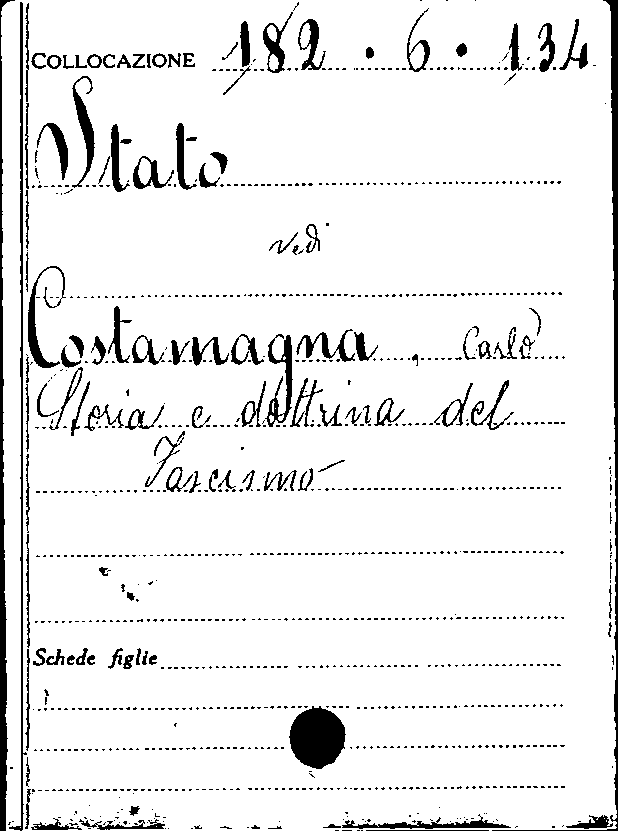 COLLOCAZIONE 182 • 6 • 134
Stato
vedi
Costamagna, Carlo
Storia e dottrina del
Fascismo
Schede figlie